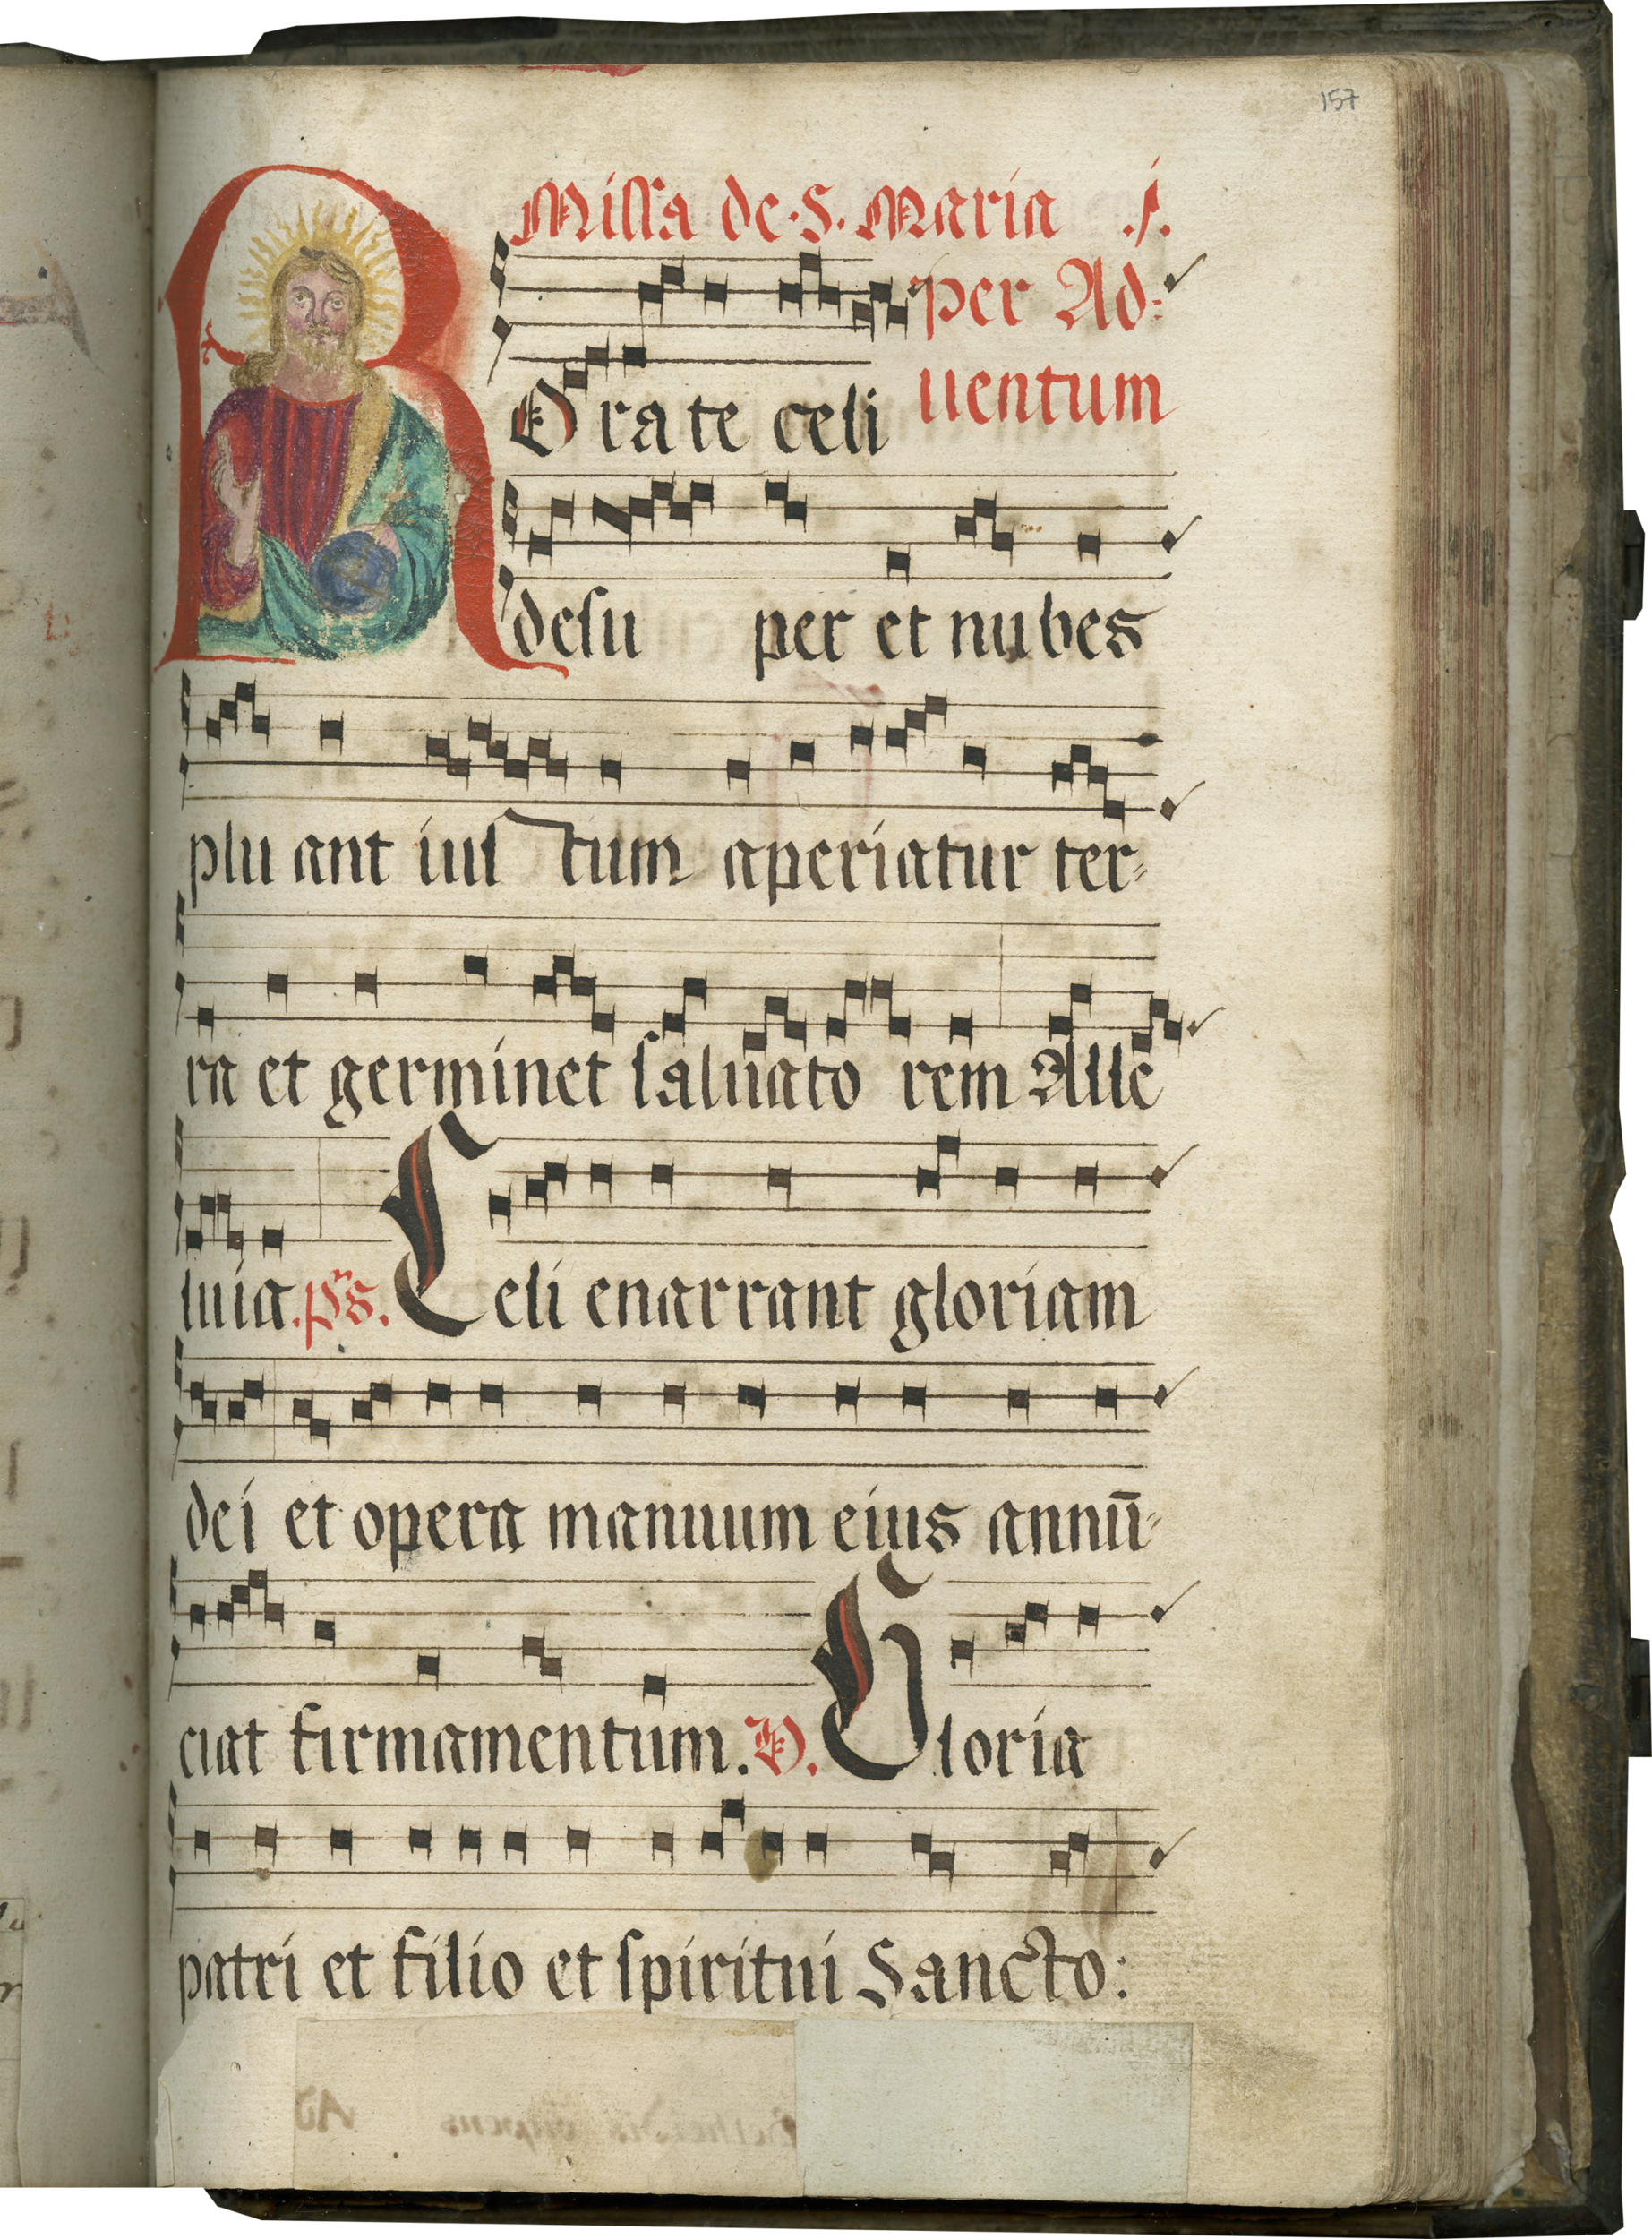 157
Missa de. S. Maria .j.
per Ad=
uentum
ROrate celi
desu per et nubes
plu ant ius tum aperiatur ter=
ra et germinet saluato rem Alle
luia. ps. Celi enarrant gloriam
dei et opera manuum eius annū=
ciat firmamentum. V. Gloria
patri et filio et spiritui Sancto: